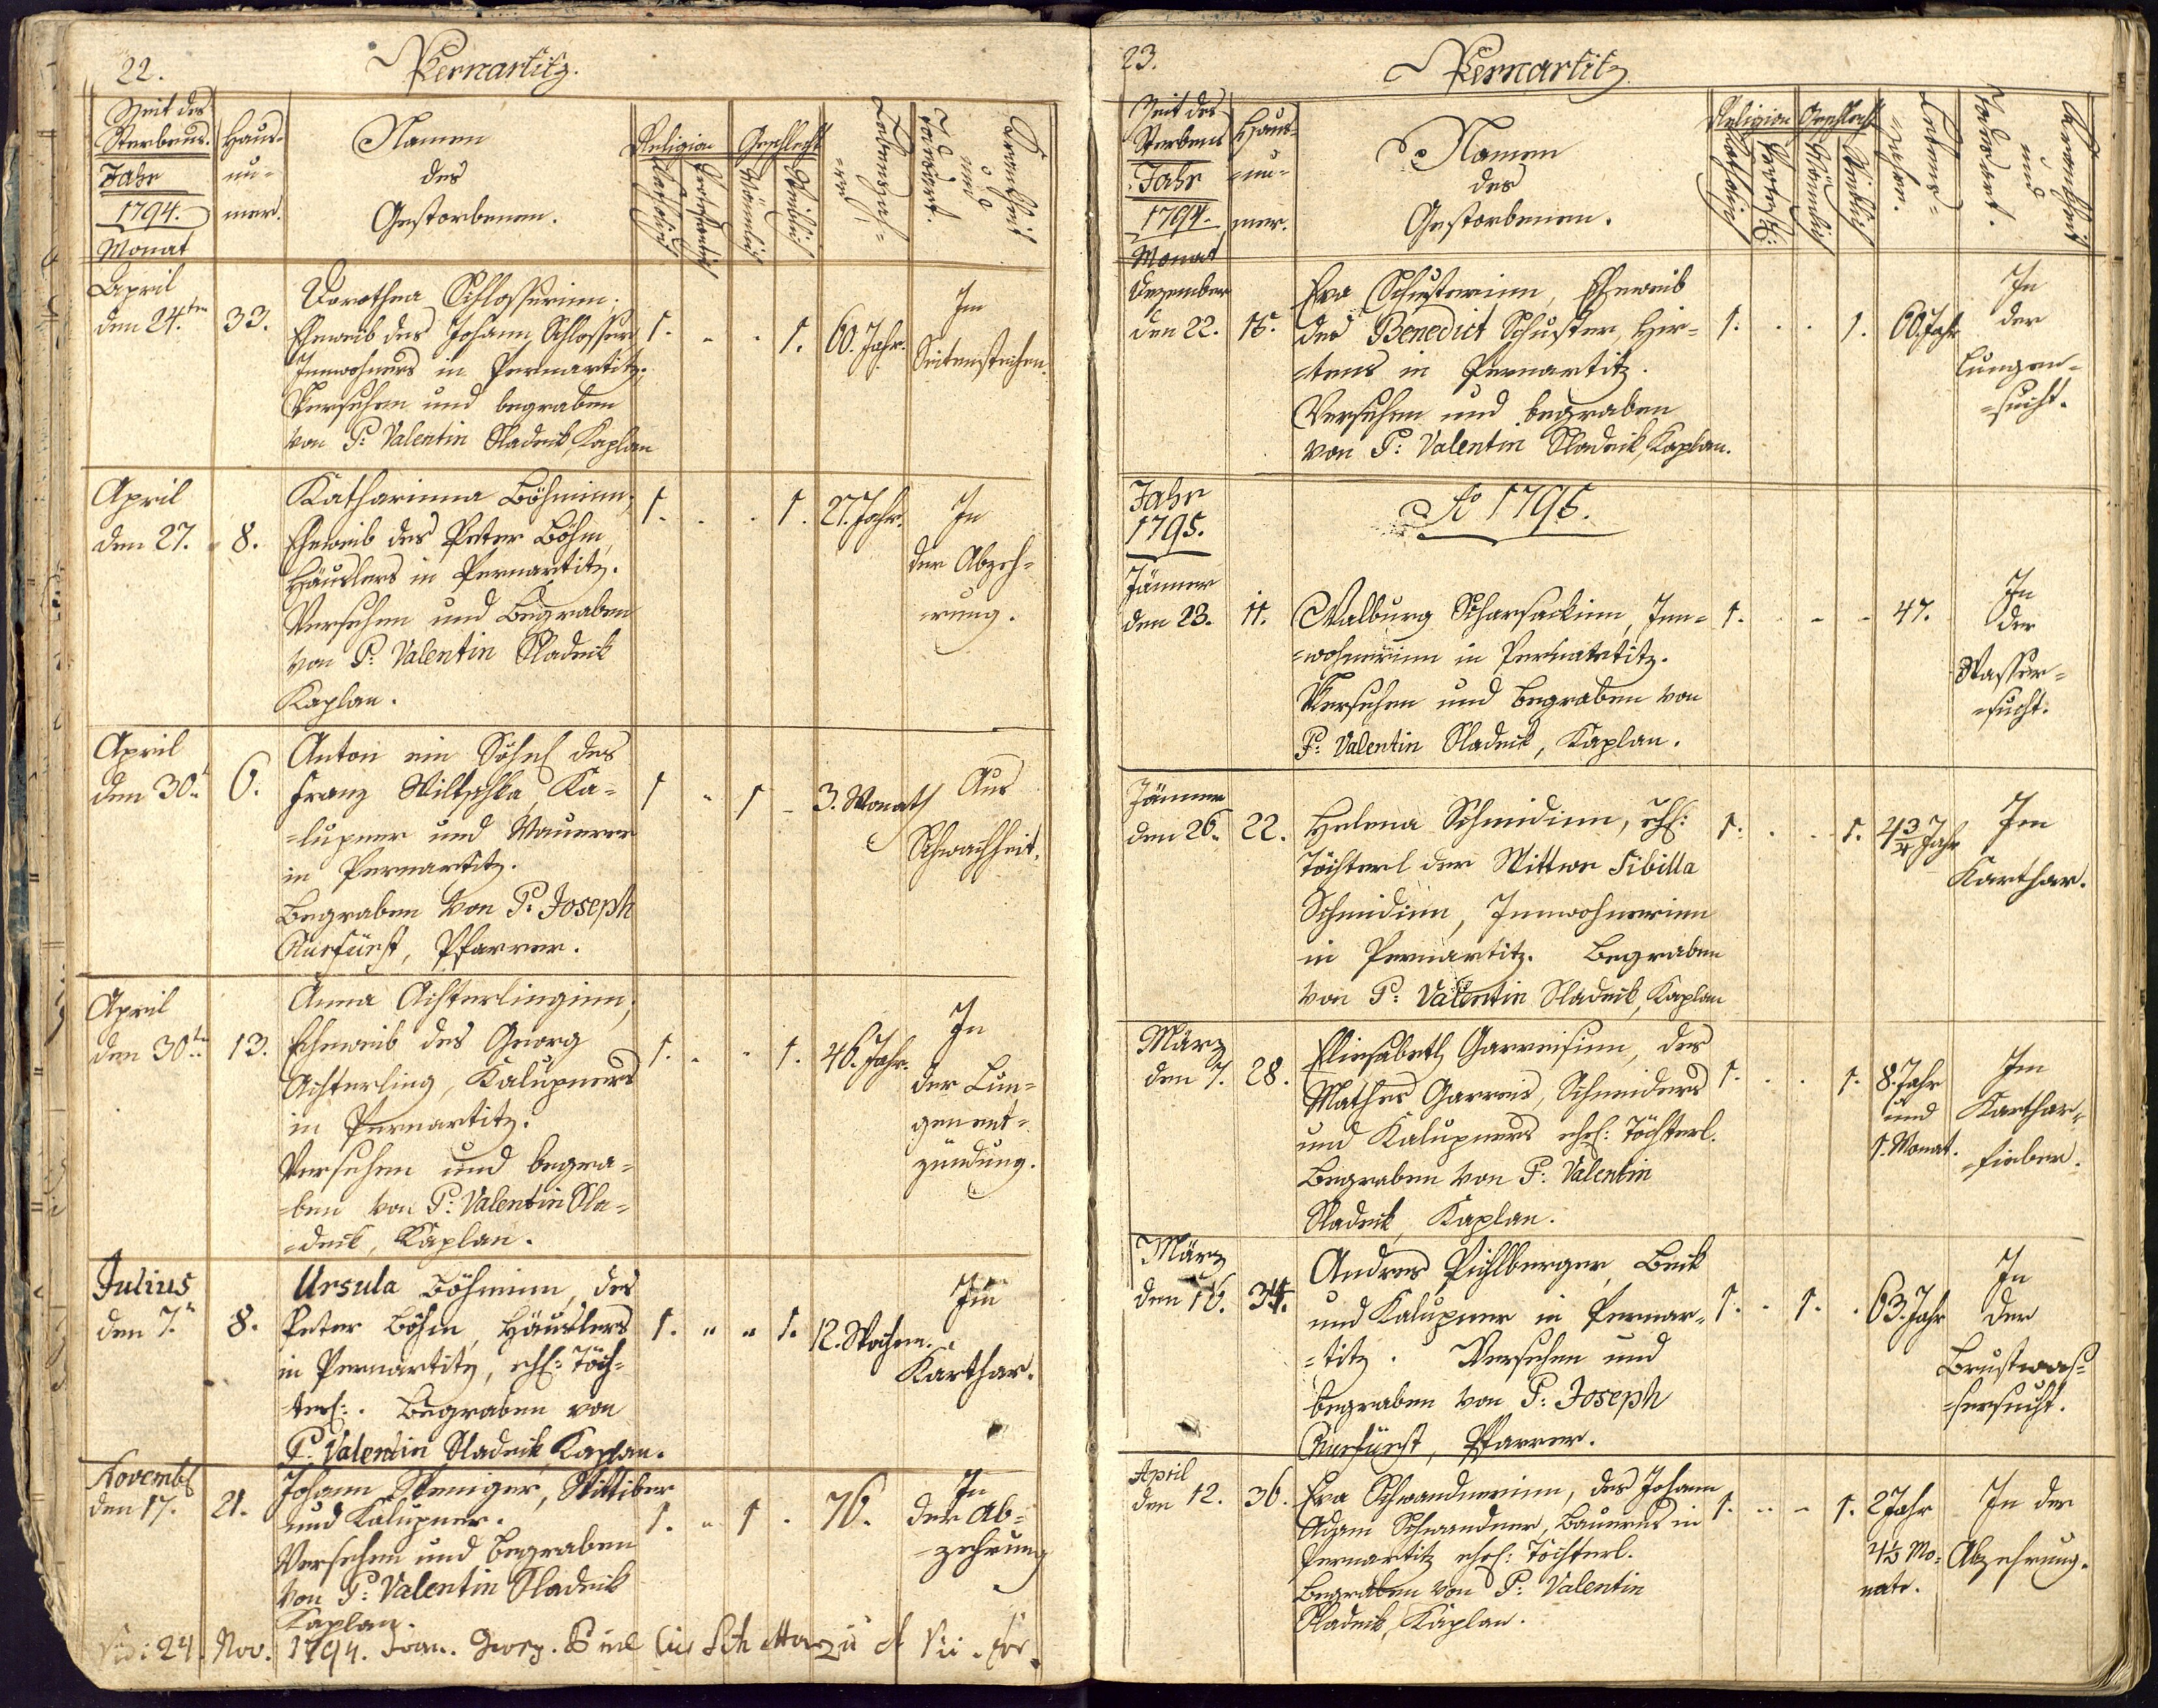 22.
Pernartitz.
Zeit des
Sterbens.
Jahr
1794.
Monat
Haus-
nu-
mer.
Namen
des
Gestorbenen.
Religion
Katholisch
Protestantisch
Geschlecht
Männlich
Weiblich
Lebensjah-
re.
Krankheit
und
Todesart.
April
den 24.ten
33.
Dorothea Schlosserinn,
Eheweib des Johann Schlosser
Innwohners in Pernartitz.
Versehen und begraben
von P: Valentin Sladeik, Kaplan
1. 1. 60. Jahr.
Im
Seitenstechen.
April
den 27.
8.
Katharinna Böhminn,
Eheweib des Peter Böhm,
Häuslers in Pernartitz.
Versehen und Begraben
von P: Valentin Sladeik
Kaplan.
1. 1. 27. Jahr.
In
der Abzeh-
rung.
April
den 30.
6.
Anton ein Söhnl des
Franz Wiltschka, Ka-
=lupner und Maurer
in Pernartitz.
Begraben von P. Joseph
Kurfürst, Pfarrer.
1 1 3. Monath
Aus
Schwachheit.
April
den 30.ten
13.
Anna Achterlinginn,
Eheweib des Georg
Achterling, Kalupners
in Pernartitz.
Versehen und begra-
=ben von P: Valentin Sla=
=deik, Kaplan.
1. 1. 46. Jahr.
In
der Lun=
genent=
zündung.
Julius
den 7.
8.
Ursula Böhminn, des
Peter Böhm, Häuslers
in Pernartitz, ehl: Töch-
terl:. Begraben von
P: Valentin Sladeik Kaplan.
1. " " 1. 12. Wochen.
Im
Karthar.
Novembl
den 17.
21.
Johann Weniger, Wittiber
und Kalupner.
Versehen und Begraben
von P: Valentin Sladeik
Kaplan.
1. 1 76.
In
der Ab-
zehrung
24. Nov. 1794.
23.
Pernartitz
Zeit des
Sterbens
Jahr
1794.
Monat
Haus-
=nu-
mer.
Namen
des
Gestorbenen.
Religion
Katholisch
Protest:
Geschlecht
Männlich
Weiblich
Lebens-
=jahre.
Krankheit
und
Todesart.
Dezember
den 22.
Eva Schusterinn, Eheweib
des Benedict Schuster, Hir-
=tens in Pernartitz.
Versehen und begraben
von P: Valentin Sladeik, Kaplan.
1. 1. 60. Jahr
In
der
Lungen-
=sucht.
Jahr
1795.
Ao 1795.
Jänner
den 23.
11.
Walburg Scharsackinn, Inn=
=wohnerinn in Pernartitz.
Versehen und Begraben von
P: Valentin Sladeik, Kaplan.
1. 47.
In
der
Wasser=
=sucht.
Jänner
den 26.
22.
Helena Schmidinn, ehl:
Töchterl der Wittwe Sibilla
Schmidinn, Innwohnerinn
in Pernartitz. Begraben
von P: Valentin Sladeik, Kaplan
1. 1. 4 3/4 Jahr
Im
Karthar.
März
den 7.
28.
Eliesabeth Garreisinn, des
Mathes Garreis, Schneiders
und Kalupners ehel: Töchterl.
Begraben von P: Valentin
Sladeik, Kaplan.
1. 1. 8. Jahr
und
1. Monat.
Im
Karthar-
=fieber.
März
den 16.
Andres Pichlberger, Beck
und Kalupner in Pernar-
=titz. Versehen und
begraben von P: Joseph
Kurfürst, Pfarrer.
1. 1. 63. Jahr
In
der
Brustwas-
=sersucht.
April
den 12.
36.
Eva Schwandnerinn, des Johann
Adam Schwandner, Bauerns in
Pernartitz ehel: Töchterl.
Begraben von P: Valentin
Sladeik, Kaplan.
1. 1. 2 Jahr
4 1/2 Mo-
nate.
In der
Abzehrung.